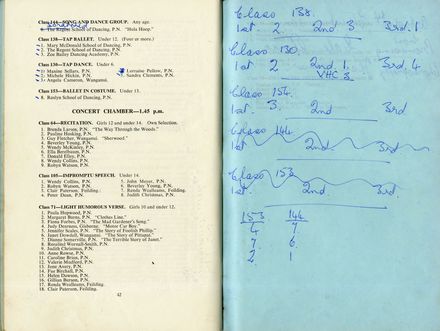 Class 144—SONG AND DANCE GROUP. Any age.
6. The Regent School of Dancing, P.N. "Hula Hoop."
Class 138—TAP BALLET. Under 12. (Four or more.)
1. Mary McDonald School of Dancing, P.N.
2. The Regent School of Dancing, P.N.
3. Zoe Bailey Dancing Academy, P.N.
Class 130—TAP DANCE. Under 6.
1. Maxine Sellars, P.N.
2. Michele Hickin, P.N.
3. Angela Cameron, Wanganui.
4. Lorraine Pellow, P.N.
5. Sandra Clements, P.N.
Class 153—BALLET IN COSTUME. Under 13.
8. Roslyn School of Dancing, P.N.
CONCERT CHAMBER—1.45 p.m.
Class 64—RECITATION. Girls 12 and under 14. Own Selection.
1. Brenda Larson, P.N. "The Way Through the Woods."
2. Pauline Hosking, P.N.
3. Gay Fletcher, Wanganui. "Sherwood."
4. Beverley Young, P.N.
5. Wendy McKinley, P.N.
6. Ella Borebaum, P.N.
7. Donald Elley, P.N.
8. Wendy Collins, P.N.
9. Robyn Watson, P.N.
Class 105—IMPROMPTU SPEECH. Under 14.
1. Wendy Collins, P.N.
2. Robyn Watson, P.N.
3. Clair Paterson, Feilding.
4. Peter Dean, P.N.
5. John Meyer, P.N.
6. Beverley Young, P.N.
7. Ronda Wealleans, Feilding.
8. Judith Christmas, P.N.
Class 71—LIGHT HUMOROUS VERSE. Girls 10 and under 12.
1. Paula Hopwood, P.N.
2. Margaret Burns, P.N. "Clothes Line."
3. Fiona Forbes, P.N. "The Mad Gardener's Song."
4. Judy Dearman, Gisborne. "Motor Car Boy."
5. Jennifer Scales, P.N. "The Story of Foolish Phillip."
6. Janet Dowdell, Wanganui. "The Story of Pittapat."
7. Dianne Somerville, P.N. "The Terrible Story of Janet."
8. Rosalind Wornall-Smith, P.N.
9. Judith Christmas, P.N.
10. Anne Rowse, P.N.
11. Caroline Brian, P.N.
12. Valerie Mudford, P.N.
13. Jane Avery, P.N.
14. Fae Birchall, P.N.
15. Helen Dawson, P.N.
16. Gillian Burson, P.N.
17. Ronda Wealleans, Feilding.
18. Clair Paterson, Feilding.
42
Class 138.
1st 2 2nd 3 3rd. 1
Class 130.
1st 2 2nd. 1. 3rd. 4
VHC 3
Class 154.
1st. 3. 2nd 3rd
Class 144
1st 2nd 3rd
Class 153
1st 2nd 3rd.
153 144
4 7
7. 6.
2. 1